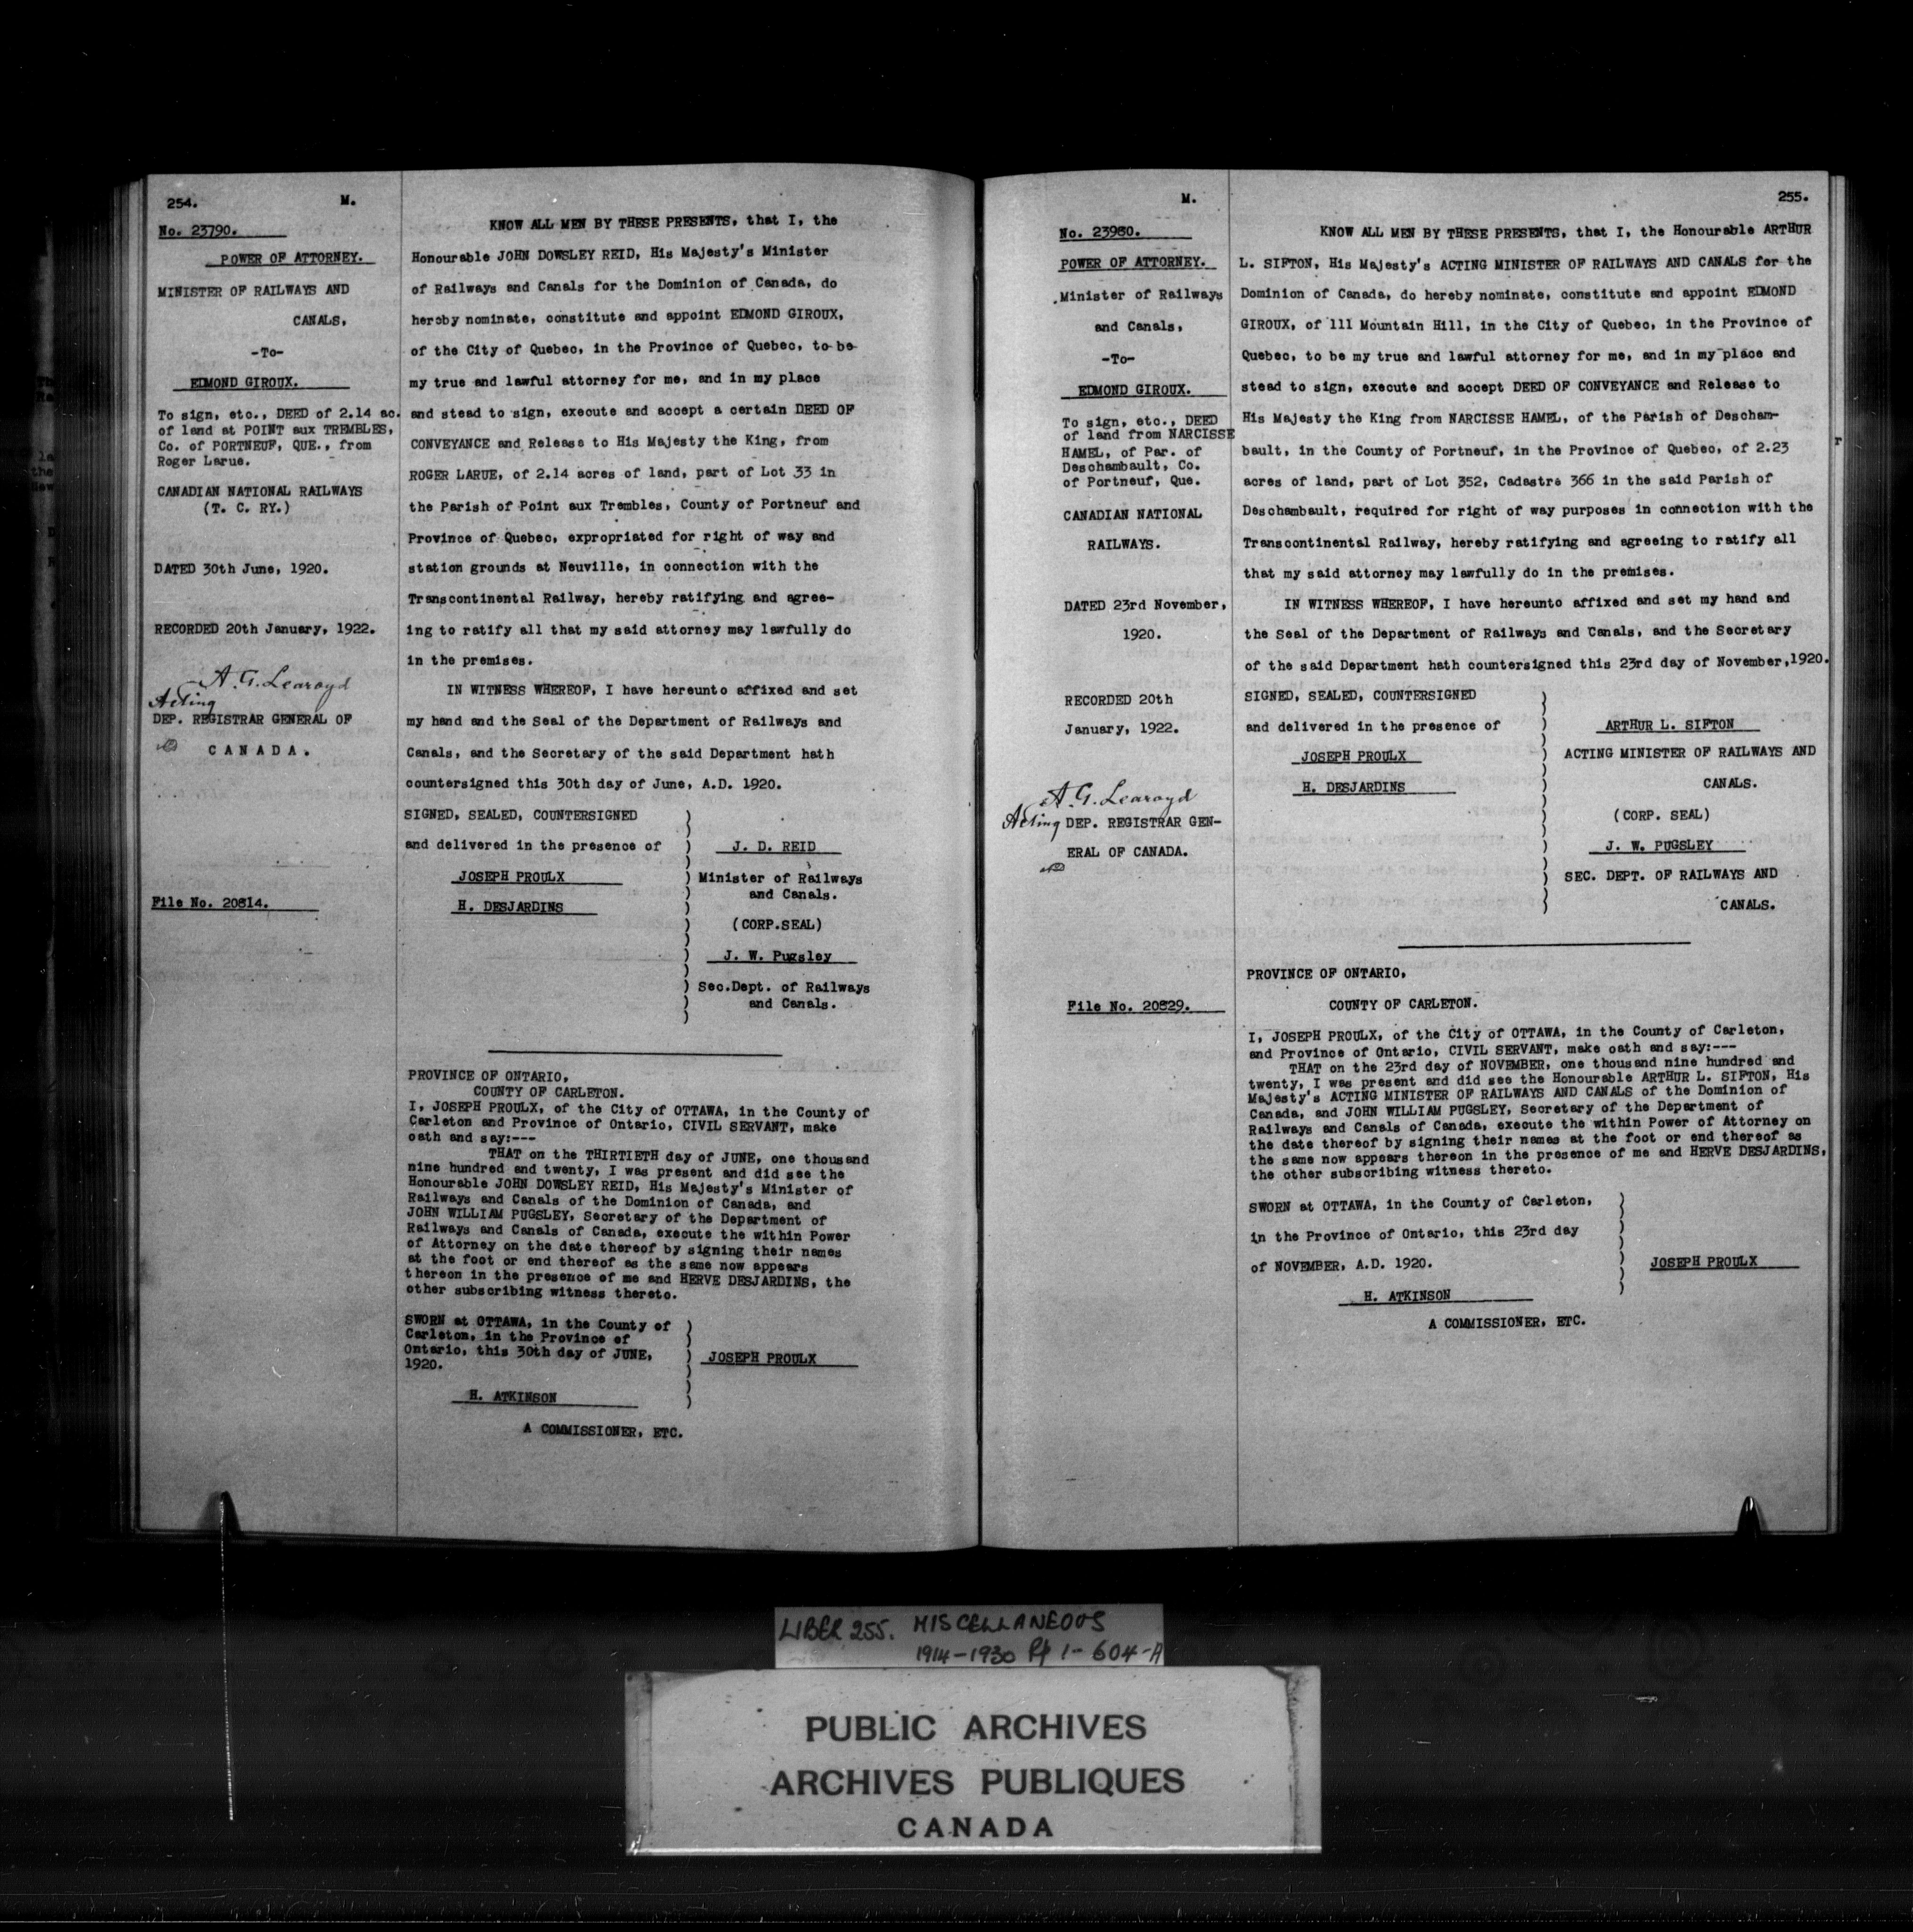 254.
M.
No. 23790.
POWER OF ATTORNEY.
MINISTER OF RAILWAYS AND
CANALS,
-To-
EDMOND GIROUX.
To sign, etc., DEED of 2.14 ac.
of land at POINT aux TREMBLES,
Co. of PORTNEUF, QUE., from
Roger Larue.
CANADIAN NATIONAL RAILWAYS
(T. C. RY.)
DATED 30th June, 1920.
RECORDED 20th January, 1922.
A. G. Learoyd
Acting
DEP. REGISTRAR GENERAL OF
CANADA.
File No. 20814.
KNOW ALL MEN BY THESE PRESENTS, that I, the
Honourable JOHN DOWSLEY REID, His Majesty's Minister
of Railways and Canals for the Dominion of Canada, do
hereby nominate, constitute and appoint EDMOND GIROUX,
of the City of Quebec, in the Province of Quebec, to be
my true and lawful attorney for me, and in my place
and stead to sign, execute and accept a certain DEED OF
CONVEYANCE and Release to His Majesty the King, from
ROGER LARUE, of 2.14 acres of land, part of Lot 33 in
the Parish of Point aux Trembles, County of Portneuf and
Province of Quebec, expropriated for right of way and
station grounds at Neuville, in connection with the
Transcontinental Railway, hereby ratifying and agree-
ing to ratify all that my said attorney may lawfully do
in the premises.
IN WITNESS WHEREOF, I have hereunto affixed and set
my hand and the Seal of the Department of Railways and
Canals, and the Secretary of the said Department hath
countersigned this 30th day of June, A.D. 1920.
SIGNED, SEALED, COUNTERSIGNED
and delivered in the presence of
JOSEPH PROULX
H. DESJARDINS
J. D. REID
Minister of Railways
and Canals.
(CORP.SEAL)
J. W. Pugsley
Sec.Dept. of Railways
and Canals.
PROVINCE OF ONTARIO,
COUNTY OF CARLETON.
I, JOSEPH PROULX, of the City of OTTAWA, in the County of
Carleton and Province of Ontario, CIVIL SERVANT, make
oath and say:---
THAT on the THIRTIETH day of JUNE, one thousand
nine hundred and twenty, I was present and did see the
Honourable JOHN DOWSLEY REID, His Majesty's Minister of
Railways and Canals of the Dominion of Canada, and
JOHN WILLIAM PUGSLEY, Secretary of the Department of
Railways and Canals of Canada, execute the within Power
of Attorney on the date thereof by signing their names
at the foot or end thereof as the same now appears
thereon in the presence of me and HERVE DESJARDINS, the
other subscribing witness thereto.
SWORN at OTTAWA, in the County of
Carleton, in the Province of
Ontario, this 30th day of JUNE,
1920.
JOSEPH PROULX
H. ATKINSON
A COMMISSIONER, ETC.
M.
255.
No. 23980.
POWER OF ATTORNEY.
Minister of Railways
and Canals,
-To-
EDMOND GIROUX.
To sign, etc., DEED
of land from NARCISSE
HAMEL, of Par. of
Deschambault, Co.
of Portneuf, Que.
CANADIAN NATIONAL
RAILWAYS.
DATED 23rd November,
1920.
RECORDED 20th
January, 1922.
A. G. Learoyd
Acting DEP. REGISTRAR GEN-
ERAL OF CANADA.
File No. 20829.
KNOW ALL MEN BY THESE PRESENTS, that I, the Honourable ARTHUR
L. SIFTON, His Majesty's ACTING MINISTER OF RAILWAYS AND CANALS for the
Dominion of Canada, do hereby nominate, constitute and appoint EDMOND
GIROUX, of 111 Mountain Hill, in the City of Quebec, in the Province of
Quebec, to be my true and lawful attorney for me, and in my place and
stead to sign, execute and accept DEED OF CONVEYANCE and Release to
His Majesty the King from NARCISSE HAMEL, of the Parish of Descham-
bault, in the County of Portneuf, in the Province of Quebec, of 2.23
acres of land, part of Lot 352, Cadastre 366 in the said Parish of
Deschambault, required for right of way purposes in connection with the
Transcontinental Railway, hereby ratifying and agreeing to ratify all
that my said attorney may lawfully do in the premises.
IN WITNESS WHEREOF, I have hereunto affixed and set my hand and
the Seal of the Department of Railways and Canals, and the Secretary
of the said Department hath countersigned this 23rd day of November,1920.
SIGNED, SEALED, COUNTERSIGNED
and delivered in the presence of
JOSEPH PROULX
H. DESJARDINS
ARTHUR L. SIFTON
ACTING MINISTER OF RAILWAYS AND
CANALS.
(CORP. SEAL)
J. W. PUGSLEY
SEC. DEPT. OF RAILWAYS AND
CANALS.
PROVINCE OF ONTARIO,
COUNTY OF CARLETON.
I, JOSEPH PROULX, of the City of OTTAWA, in the County of Carleton,
and Province of Ontario, CIVIL SERVANT, make oath and say:---
THAT on the 23rd day of NOVEMBER, one thousand nine hundred and
twenty, I was present and did see the Honourable ARTHUR L. SIFTON, His
Majesty's ACTING MINISTER OF RAILWAYS AND CANALS of the Dominion of
Canada, and JOHN WILLIAM PUGSLEY, Secretary of the Department of
Railways and Canals of Canada, execute the within Power of Attorney on
the date thereof by signing their names at the foot or end thereof as
the same now appears thereon in the presence of me and HERVE DESJARDINS,
the other subscribing witness thereto.
SWORN at OTTAWA, in the County of Carleton,
in the Province of Ontario, this 23rd day
of NOVEMBER, A.D. 1920.
JOSEPH PROULX
H. ATKINSON
A COMMISSIONER, ETC.
LIBER 255. MISCELLANEOUS
1914-1930 Pp 1-604-A
PUBLIC ARCHIVES
ARCHIVES PUBLIQUES
CANADA